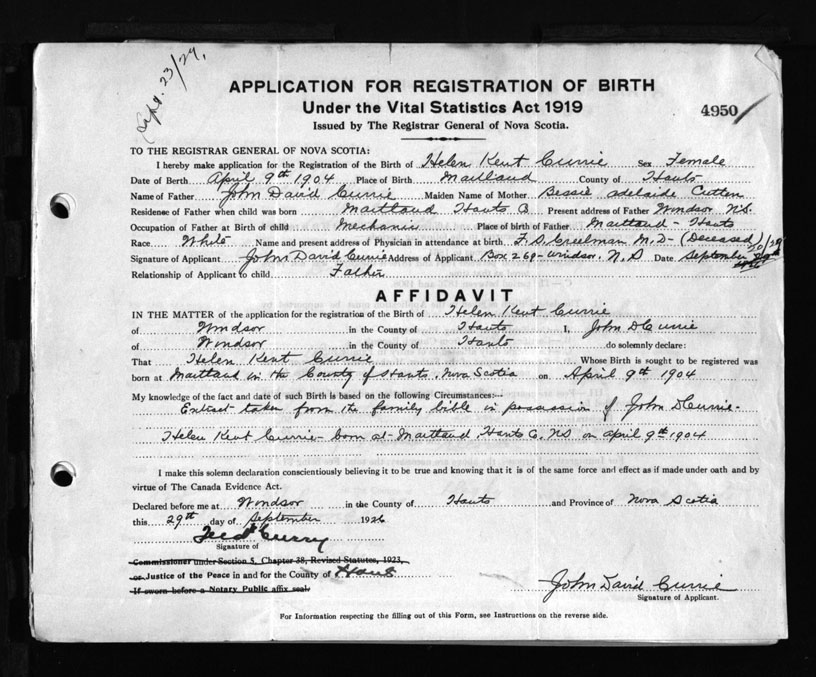 Sept. 23/29,
APPLICATION FOR REGISTRATION OF BIRTH
Under the Vital Statistics Act 1919
4950
Issued by The Registrar General of Nova Scotia.
TO THE REGISTRAR GENERAL OF NOVA SCOTIA:
I hereby make application for the Registration of the Birth of Helen Kent Currie Sex Female
Date of Birth April 9th 1904 Place of Birth Maitland County of Hants
Name of Father John David Currie Maiden Name of Mother Bessie adelaide Cutten
Residense of Father when child was born Maitland Hants Co Present address of Father Windsor N.S.
Occupation of Father at Birth of child Mechanic Place of birth of Father Maitland - Hants
Race White Name and present address of Physician in attendance at birth F. S. Creelman M.D - (Deceased)
Signature of Applicant John David Currie Address of Applicant Box 268 - Windsor. N.S Date September
Relationship of Applicant to child Father
AFFIDAVIT
IN THE MATTER of the application for the registration of the Birth of Helen Kent Currie
of Windsor in the County of Hants I, John D Currie
of Windsor in the County of Hants do solemnly declare:
That Helen Kent Currie Whose Birth is sought to be registered was
born at Maitland in the County of Hants, Nova Scotia on April 9th 1904
My knowledge of the fact and date of such Birth is based on the following Circumstances:—
Extract taken from the family bible in possession of John D Currie-
Helen Kent Currie - born at Maitland, Hants Co. NS on april 9th 1904
I make this solemn declaration conscientiously believing it to be true and knowing that it is of the same force and effect as if made under oath and by
virtue of The Canada Evidence Act.
Declared before me at Windsor in the County of Hants and Province of Nova Scotia
this 29th day of September 1926
Curry
Signature of
Commissioner under Section 5, Chapter 38, Revised Statutes, 1923,
or Justice of the Peace in and for the County of Hants
If sworn before a Notary Public affix seal.
John David Currie
Signature of Applicant.
For Information respecting the filling out of this Form, see Instructions on the reverse side.